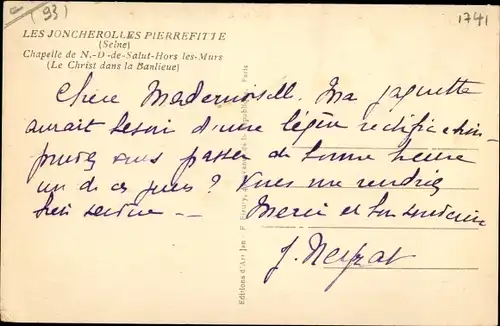 (93)
1741
LES JONCHEROLLES PIERREFITTE
(Seine)
Chapelle de N.-D-de-Salut-Hors les-Murs
(Le Christ dans la Banlieue)
Chère Mademoiselle, Ma jaquette
aurait besoin d'une légère rectification.
pouvez vous passer de bonne heure
un de ces jours ? Vous me rendrez
bien service -- Merci et bon souvenir
Editions d'Art Jan P. Fleury, Paris